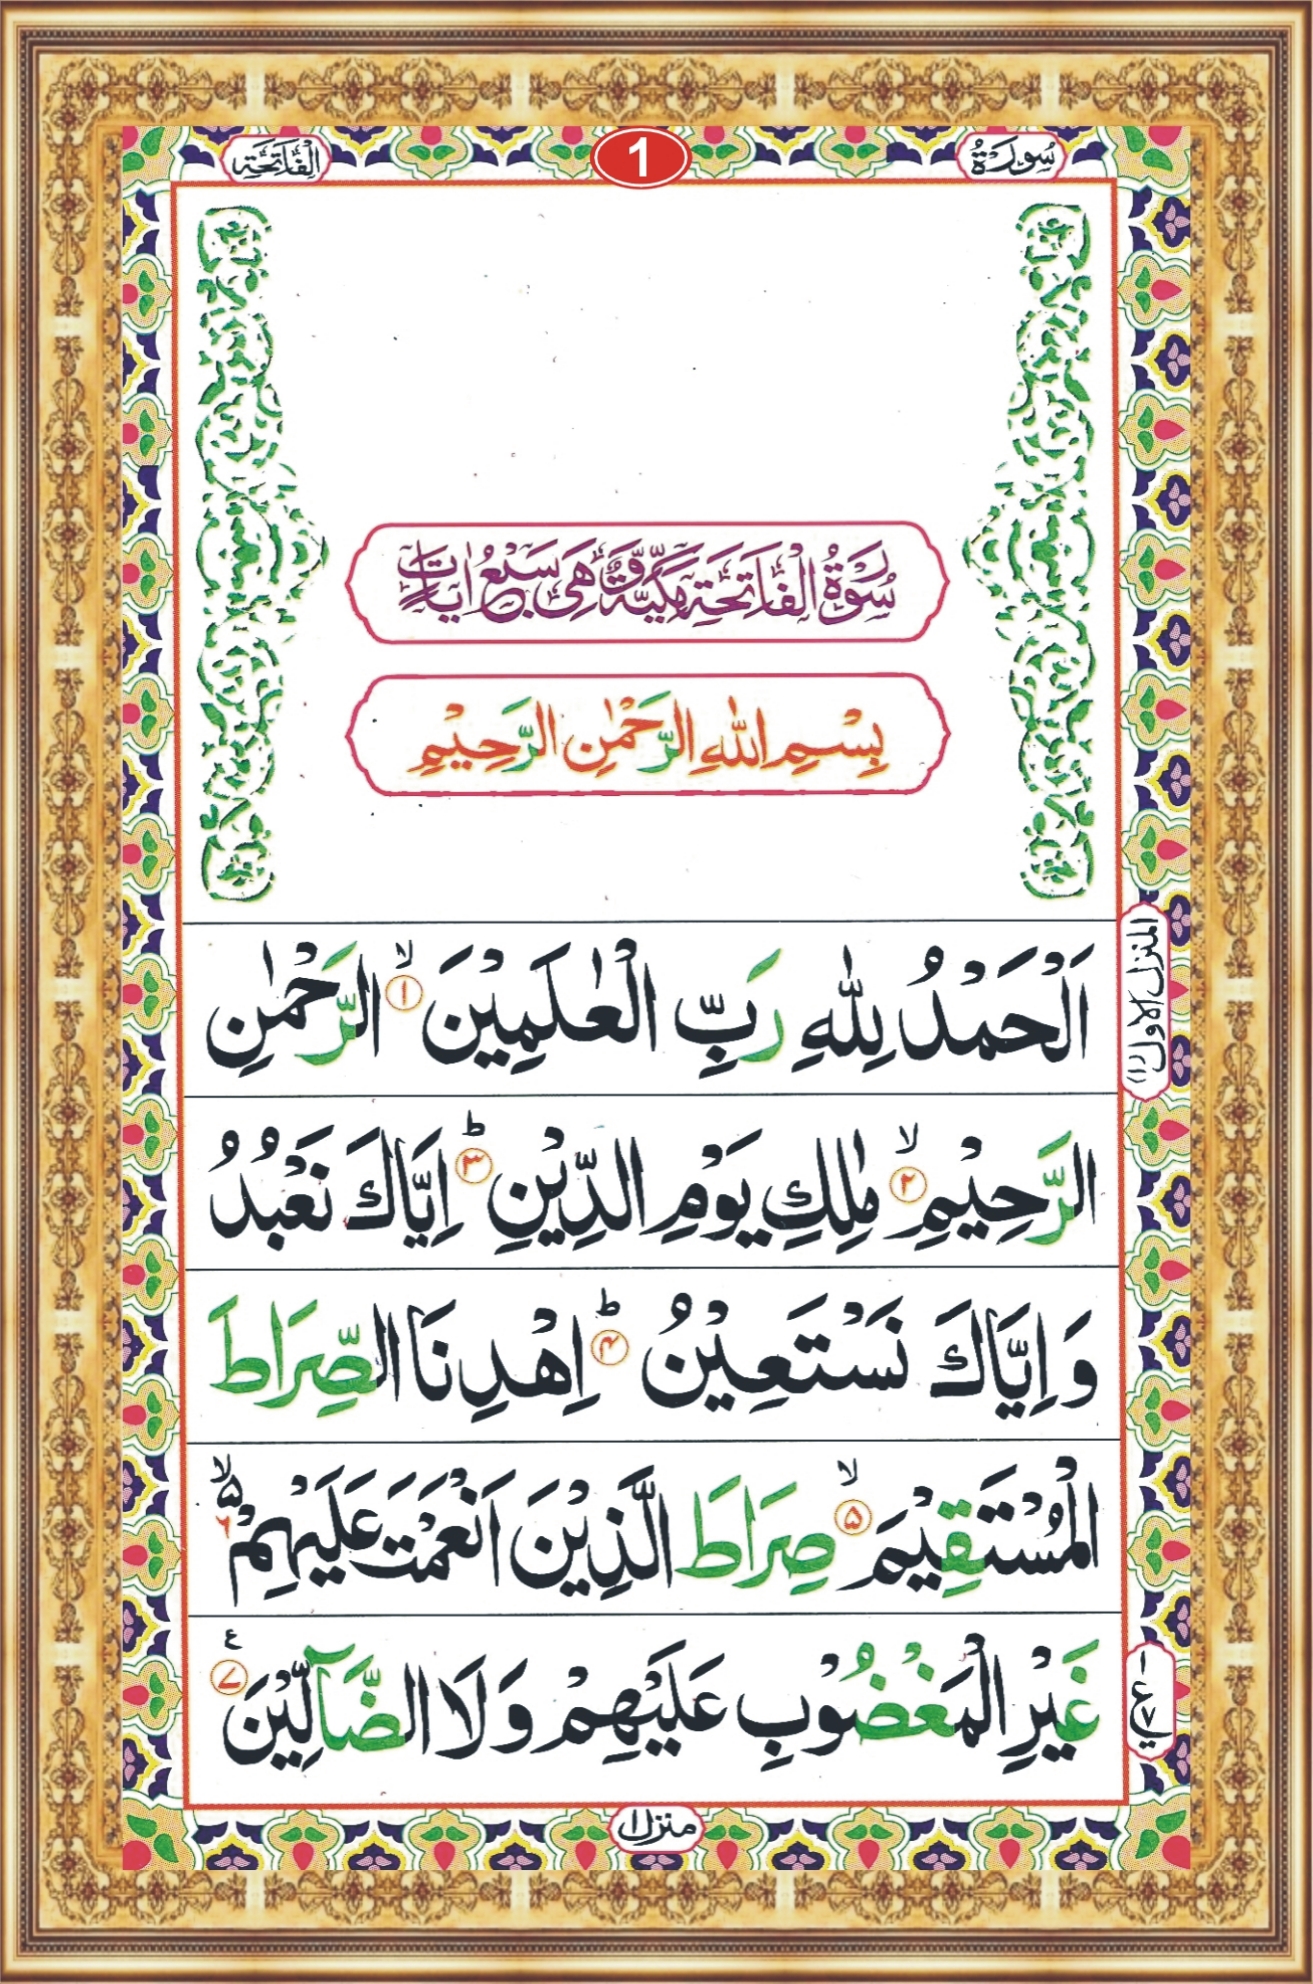 سُورَةُ 1 الْفَاتِحَة
سُوْرَةُ الْفَاتِحَةِ مَكِّيَّةٌ وَّهِىَ سَبْعُ اٰيَاتٍ
بِسْمِ اللّٰهِ الرَّحْمٰنِ الرَّحِيْمِ
اَلْحَمْدُ لِلّٰهِ رَبِّ الْعٰلَمِيْنَ ۙ﴿۱﴾ الرَّحْمٰنِ
الرَّحِيْمِ ۙ﴿۲﴾ مٰلِكِ يَوْمِ الدِّيْنِ ؕ﴿۳﴾ اِيَّاكَ نَعْبُدُ
وَاِيَّاكَ نَسْتَعِيْنُ ؕ﴿۴﴾ اِهْدِنَا الصِّرَاطَ
الْمُسْتَقِيْمَ ۙ﴿۵﴾ صِرَاطَ الَّذِيْنَ اَنْعَمْتَ عَلَيْهِمْ ۙ۵ ۶
غَيْرِ الْمَغْضُوْبِ عَلَيْهِمْ وَلَا الضَّآلِّيْنَ ﴿۷﴾ ع
المنزل الاول (۱)
منزل ۱